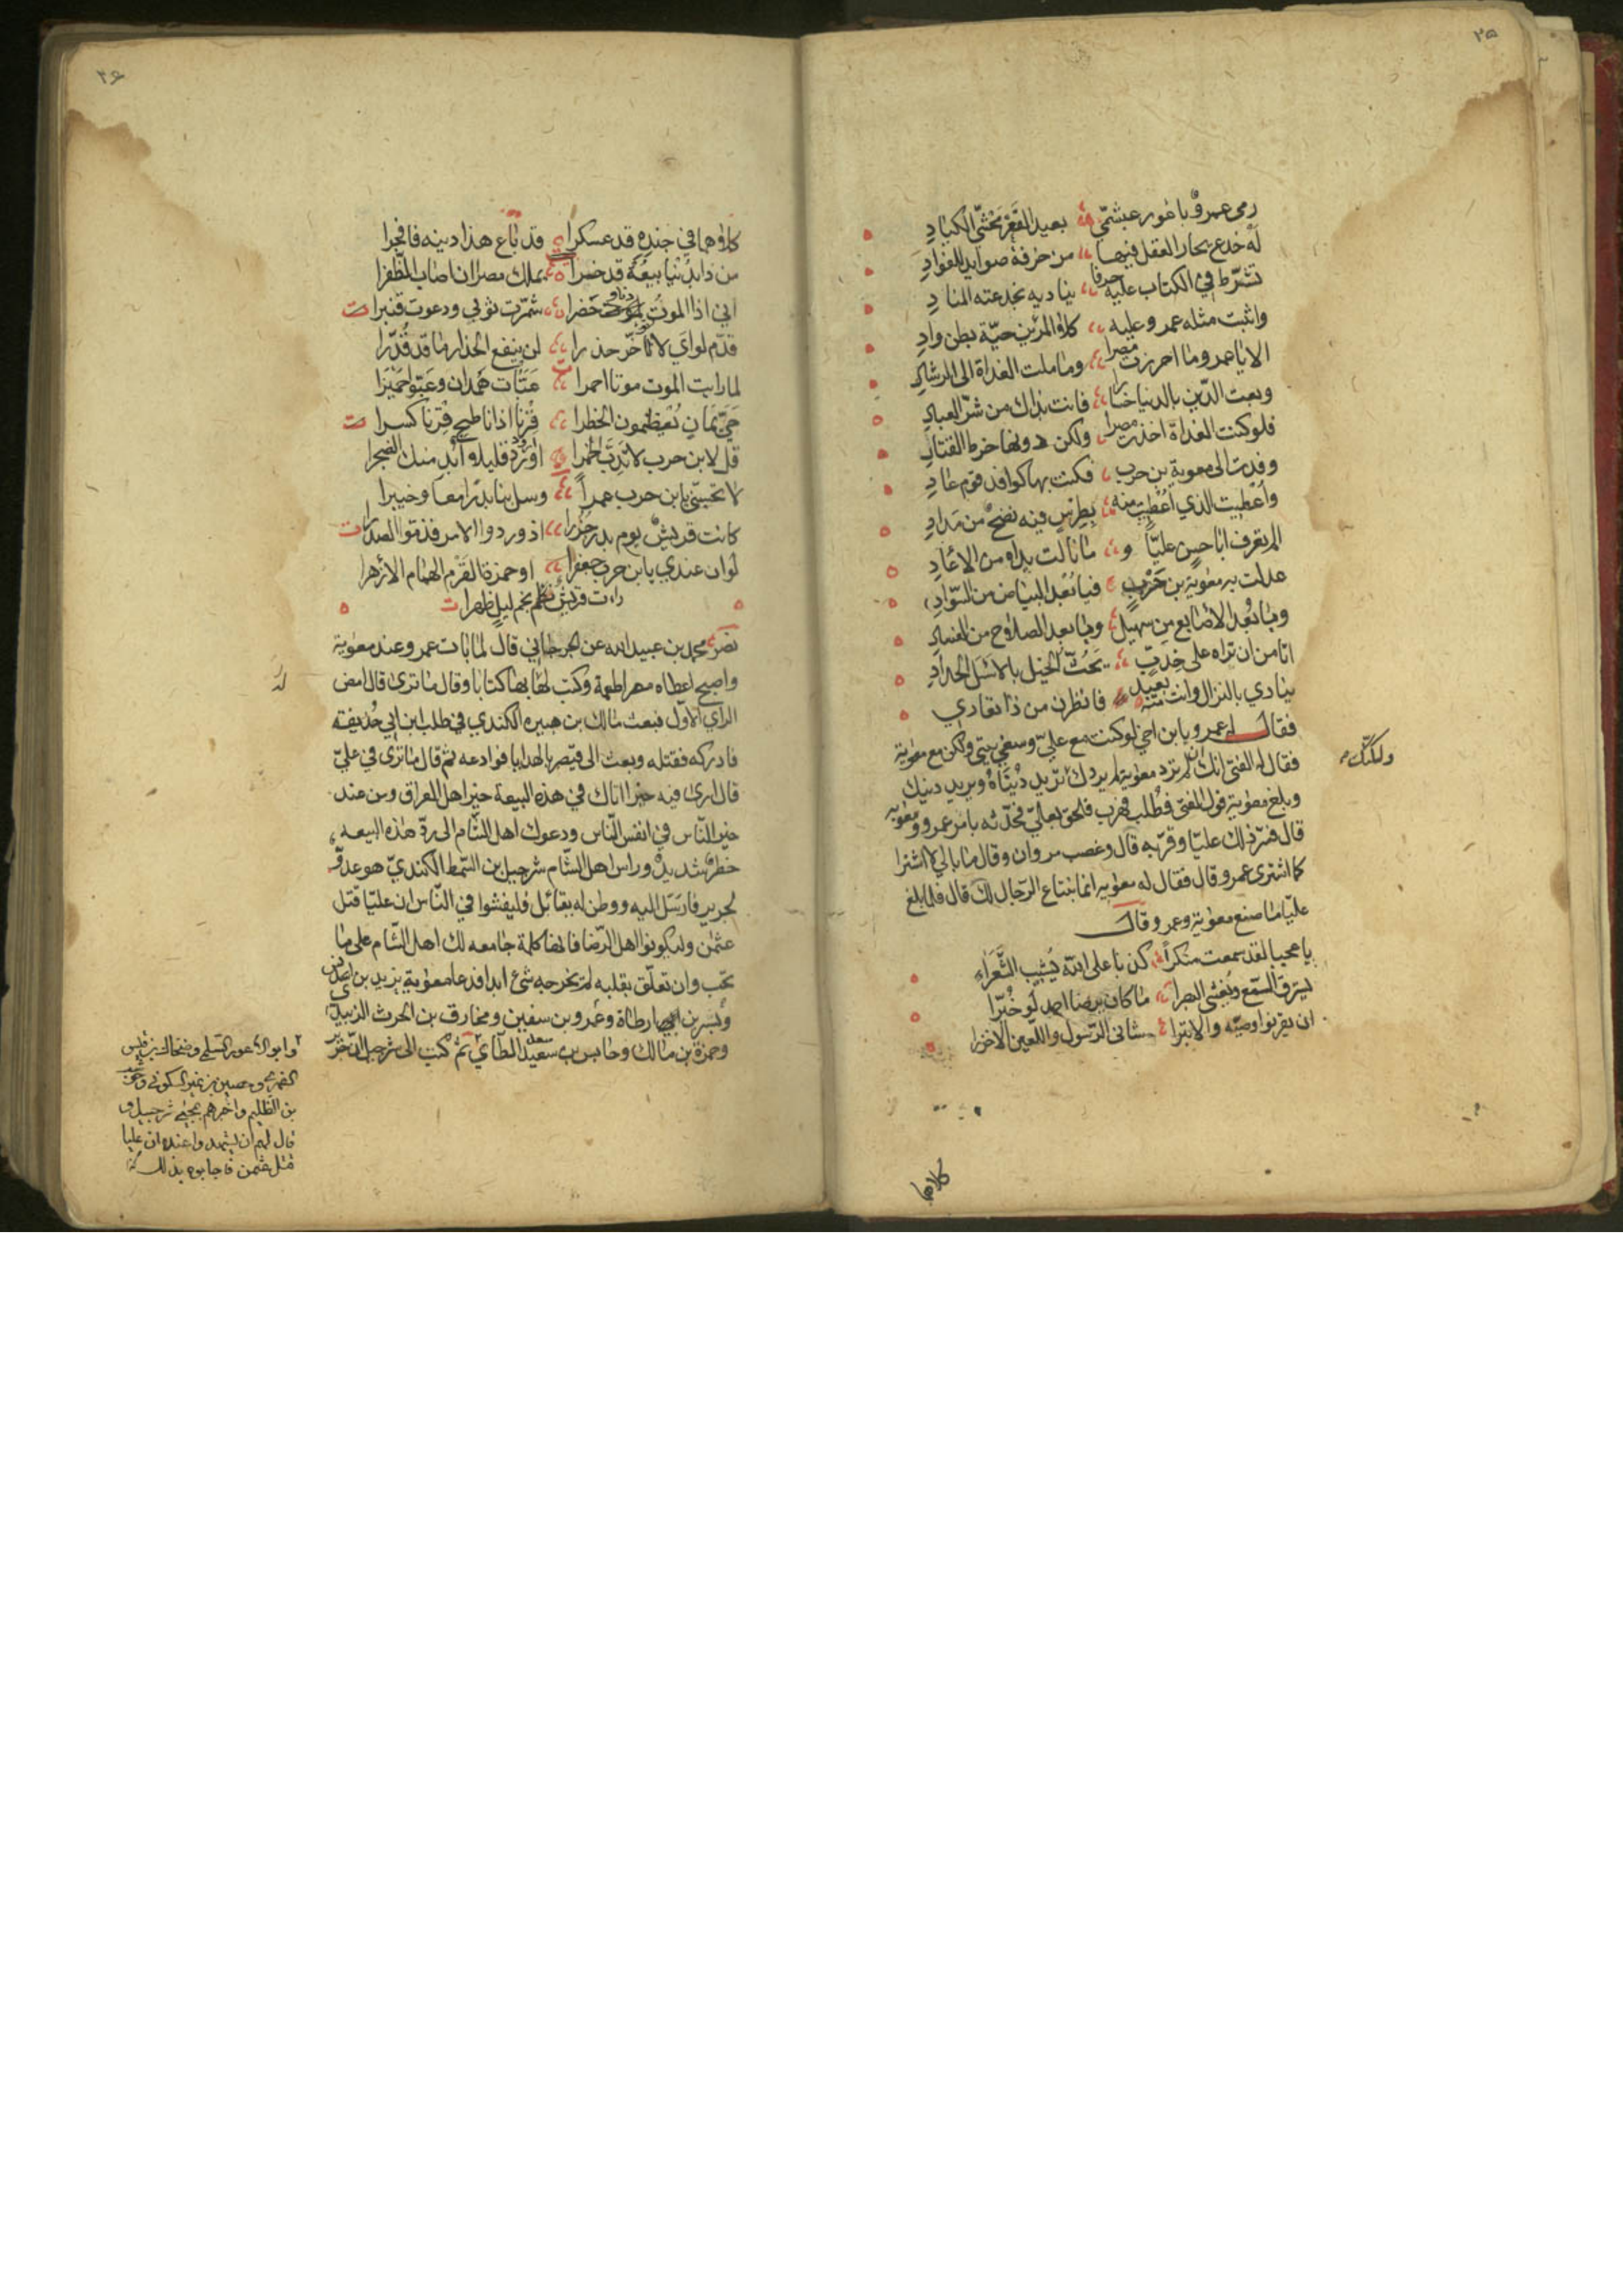 ٣٥
رمى عمرو باعور عبشمي بعيد القعر مخشي الكباد
له خدع يحار العقل فيها مزخرفة صوايد للفواد
تشرط في الكتاب عليه حرفا يناديه بخدعته المناد
واثبت مثله عمرو عليه كلا المرين حية بطن واد
الا يا عمرو ما احرزت مصرا وما ملت الغداة الى الرشاد
وبعت الدين بالدنيا خسارا فانت بذاك من شر العباد
فلو كنت الغداة اخذت مصرا ولكن دونها خرط القتاد
وفدت الى معوية بن حرب فكنت بها كوافد قوم عاد
واعطيت الذي اعطيت منه بطرس فيه نضح من مداد
الم تعرف ابا حسن عليا وما نالت يداه من الاعاد
عدلت به معوية بن حرب فيا بعد البياض من السواد
ويا بعد الاصابع من سهيل ويا بعد الصلاح من الفساد
اتامن ان تراه على خدب يحث الخيل بالاسل الحداد
ينادي بالنزال وانت منه بعيد فانظرن من ذا تعادي
فقال عمرو يا ابن اخي لوكنت مع علي وسعني بيتي ولكن مع معوية
فقال له الفتى انك ان لم ترد معوية لم يردك تريد دنياه ويريد دينك
ولكنك
وبلغ معوية قول الفتى فطلب فهرب فلحق بعلي فحدثه بامر عمرو ومعوية
قال فسر ذلك عليا وقربه قال وغضب مروان وقال ما بالي لا اشترا
كما اشترى عمرو قال فقال له معوية انما نبتاع الرجال لك قال فلما بلغ
عليا ما صنع معوية وعمرو قال
يا عجبا لقد سمعت منكرا كذبا على الله يشيب الشعراء
يسترق السمع ويغشى البصرا ما كان يرضا احمد لو خبرا
ان يقرنوا وصيه والابترا شانى الرسول واللعين الاخزرا
كلاهما
٣٦
كلاهما في جنده قد عسكرا قد باع هذا دينه فافجرا
من ذا بدنيا بيعه قد خسرا بملك مصر ان اصاب الظفرا
اني اذا الموت دنا وحضرا شمرت ثوبي ودعوت قنبرا
قدم لواي لا تؤخر حذرا لن ينفع الحذار ما قد قدرا
لما رايت الموت موتا احمرا عبات همدان وعبوا حميرا
حي يمان يعظمون الخطرا قرنا اذا ناطح قرنا كسرا
قل لابن حرب لا تدب الخمرا ارود قليلا ابد منك الضجرا
لا تحسبني يا بن حرب عمرا وسل بنا بدرا معا وخيبرا
كانت قريش يوم بدر جزرا اذ وردوا الامر فذموا الصدرا
لو ان عندي يا بن حرب جعفرا او حمزة القرم الهمام الازهرا
رات قريش نجم ليل ظهرا
نصر محمد بن عبيد الله عن الجرجاني قال لما بات عمرو عند معوية
واصبح اعطاه مصر اطعمة وكتب لها بها كتابا وقال ما ترى قال امض
له
الراي الاول فبعث مالك بن هبيرة الكندي في طلب ابن ابي حذيفة
فادركه فقتله وبعث الى قيصر بالهدايا فوادعه ثم قال ما ترى في علي
قال ارى فيه خيرا اتاك في هذه البيعة خير اهل العراق ومن عند
خير الناس في انفس الناس ودعوك اهل الشام الى رد هذه البيعه
خطر شديد وراس اهل الشام شرحبيل بن السمط الكندي هو عدو
لجرير فارسل اليه ووطن له بقائل فليفشوا في الناس ان عليا قتل
عثمن وليكونوا اهل الرضا فانها كلمة جامعه لك اهل الشام على ما
تحب وان تعلق بقلبه لم يخرجه شئ ابدا فدعا معوية يزيد بن اسد
وبسر بن ارطاة وعمرو بن سفين ومخارق بن الحرث الزبيدي
وحمزة بن مالك وحابس بن سعيد سعد الطآي ثم كتب الى شرحبيل ان جرير
وابو الاعور السلمي وضحاك بن قيس
الفهري وحصين بن نمير السكوني وحوشب
بن الظليم واخبرهم بمجيئ شرحبيل و
قال لهم ان يشهدوا عنده ان عليا
قتل عثمن فاجابوه بذلك